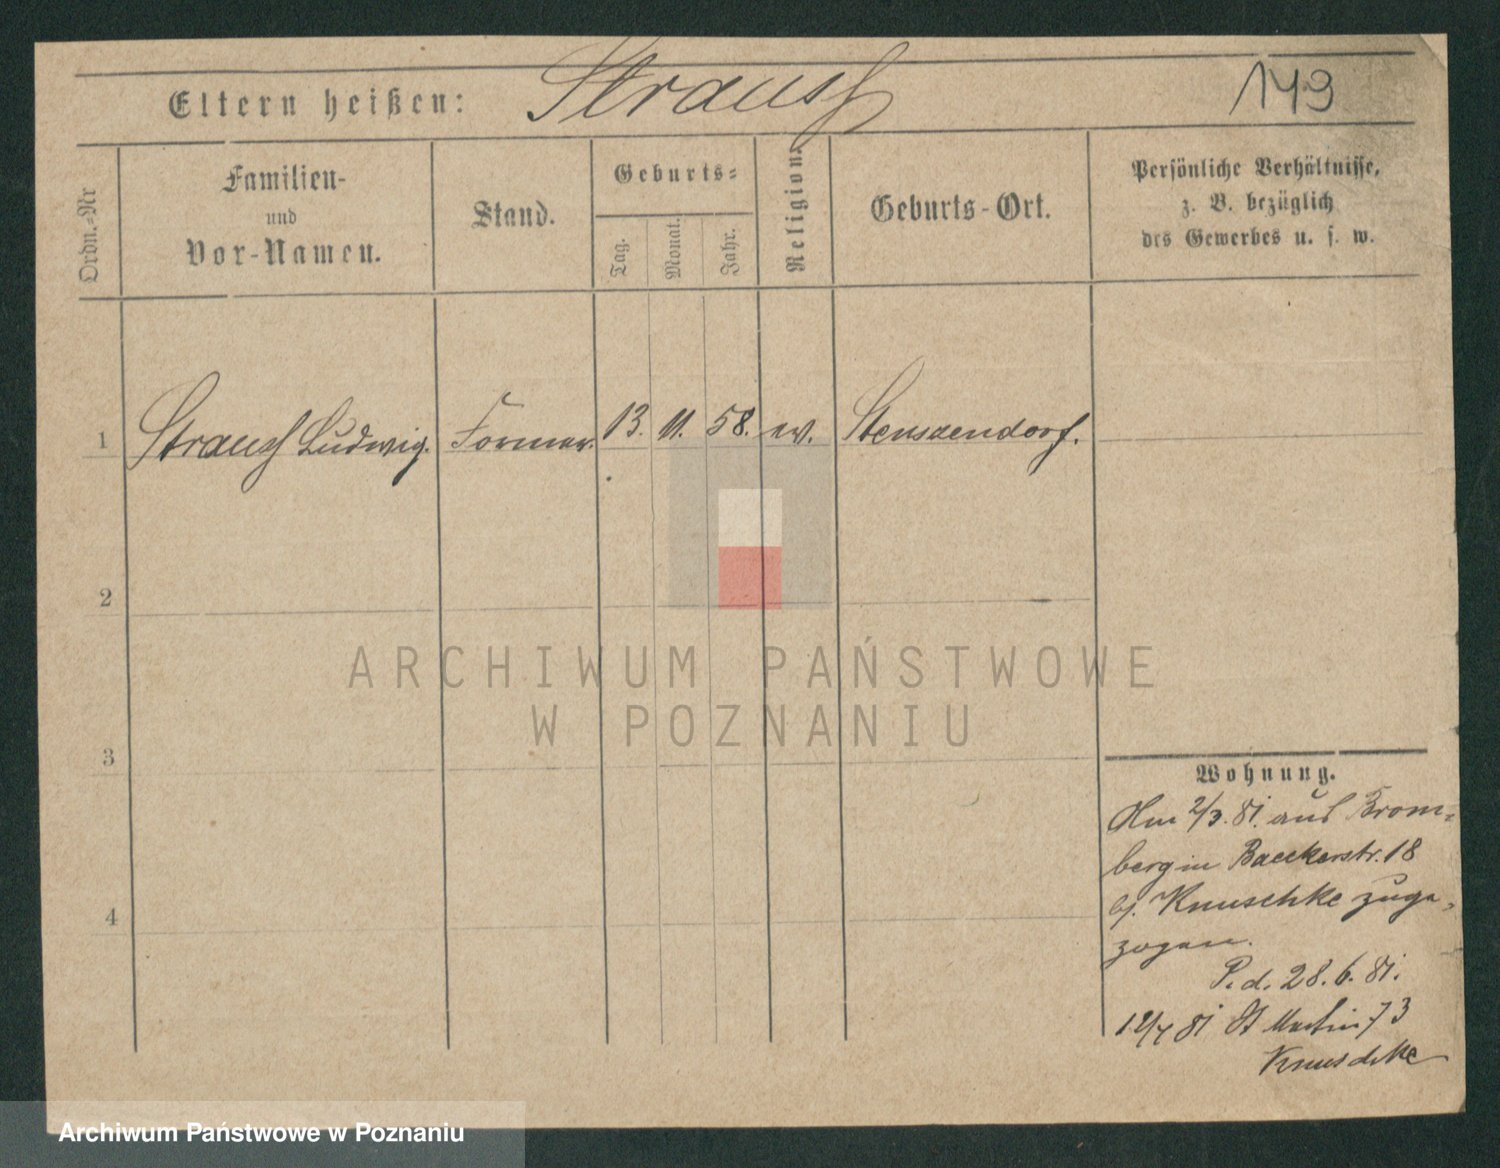 149
Eltern heißen: Strauß
Ordn.-Nr
Familien-
und
Vor-Namen.
Stand.
Geburts-
Tag.
Monat.
Jahr.
Religion.
Geburts-Ort.
Persönliche Verhältnisse,
z. B. bezüglich
des Gewerbes u. s. w.
1 Strauß Ludwig. Former. 13. 11. 58. ev.
2
3
4
ARCHIWUM PAŃSTWOWE
W POZNANIU
Wohnung.
Am 2/3. 81. aus Brom-
berg in Baeckerstr. 18
bj. Knuschke zuge-
zogen.
P. d. 28. 6. 81.
81 St Martin 73
Knuschke
Archiwum Państwowe w Poznaniu